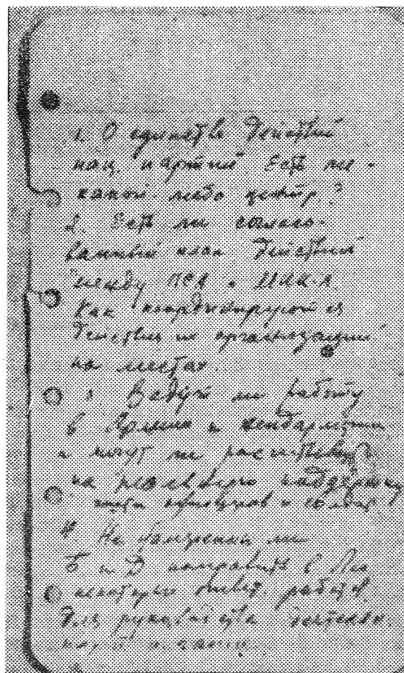 1. О единстве действий
нац. партий. Есть ли
какой либо центр?
2. Есть ли согласо-
ванный план действий
между ПСА и
Как координируются
действия их организаций
на местах.
3. Ведут ли работу
в Армии и жандармерии
и могут ли рассчитывать
на реальную поддержку
части офицеров и солдат
4. Не намерены ли
Б и В направить в Лео
некоторых ответ. работ.
для руководства